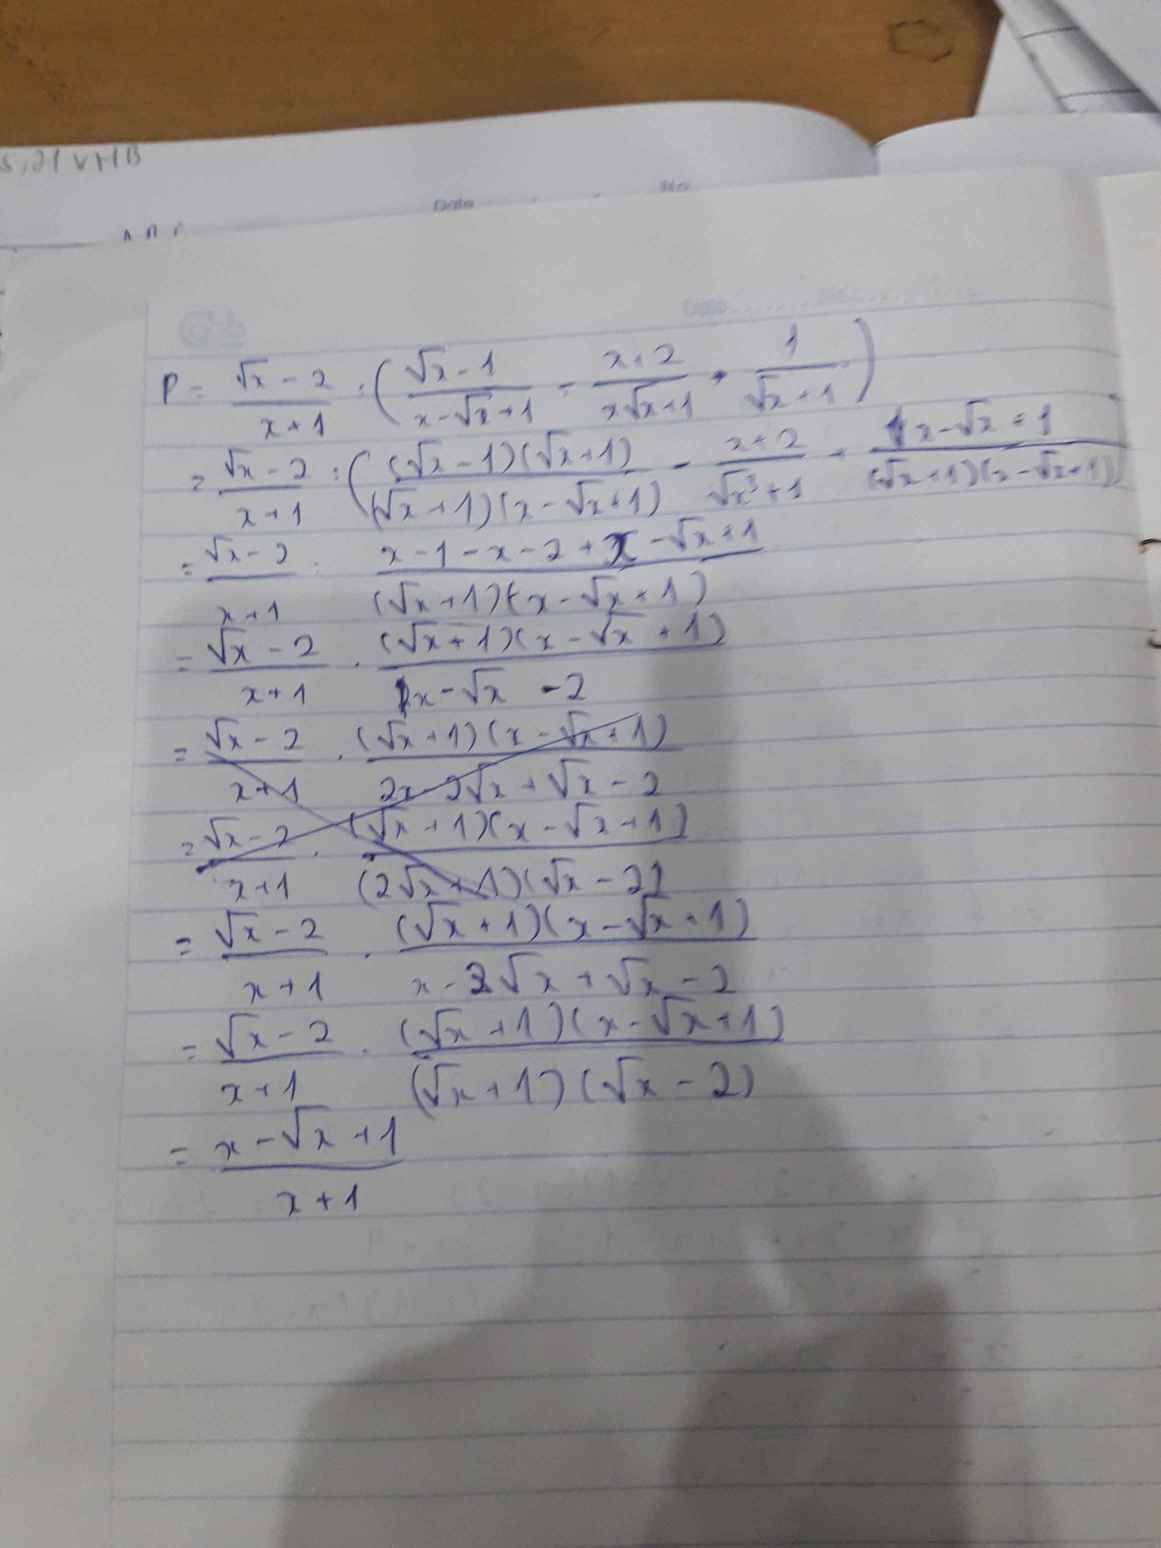 Date No
P = (√x - 2)/(x + 1) : ( (√x - 1)/(x - √x + 1) - (x + 2)/(x√x + 1) + 1/(√x + 1) )
= (√x - 2)/(x + 1) : ( (√x - 1)(√x + 1)/((√x + 1)(x - √x + 1)) - (x + 2)/(√x³ + 1) + (x - √x + 1)/((√x + 1)(x - √x + 1)) )
= (√x - 2)/(x + 1) : (x - 1 - x - 2 + x - √x + 1)/((√x + 1)(x - √x + 1))
= (√x - 2)/(x + 1) . (√x + 1)(x - √x + 1)/(x - √x - 2)
= (√x - 2)/(x + 1) . (√x + 1)(x - √x + 1)/(2x - 2√x + √x - 2)
= (√x - 2)/(x + 1) . (√x + 1)(x - √x + 1)/((2√x + 1)(√x - 2))
= (√x - 2)/(x + 1) . (√x + 1)(x - √x + 1)/(x - 2√x + √x - 2)
= (√x - 2)/(x + 1) . (√x + 1)(x - √x + 1)/((√x + 1)(√x - 2))
= (x - √x + 1)/(x + 1)